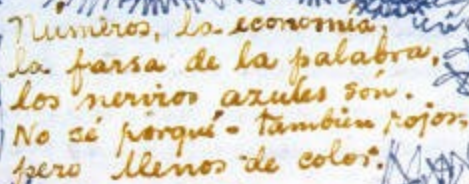 Números, la economía,
la farsa de la palabra,
los nervios azules son.
No sé porqué - también rojos,
pero llenos de color.